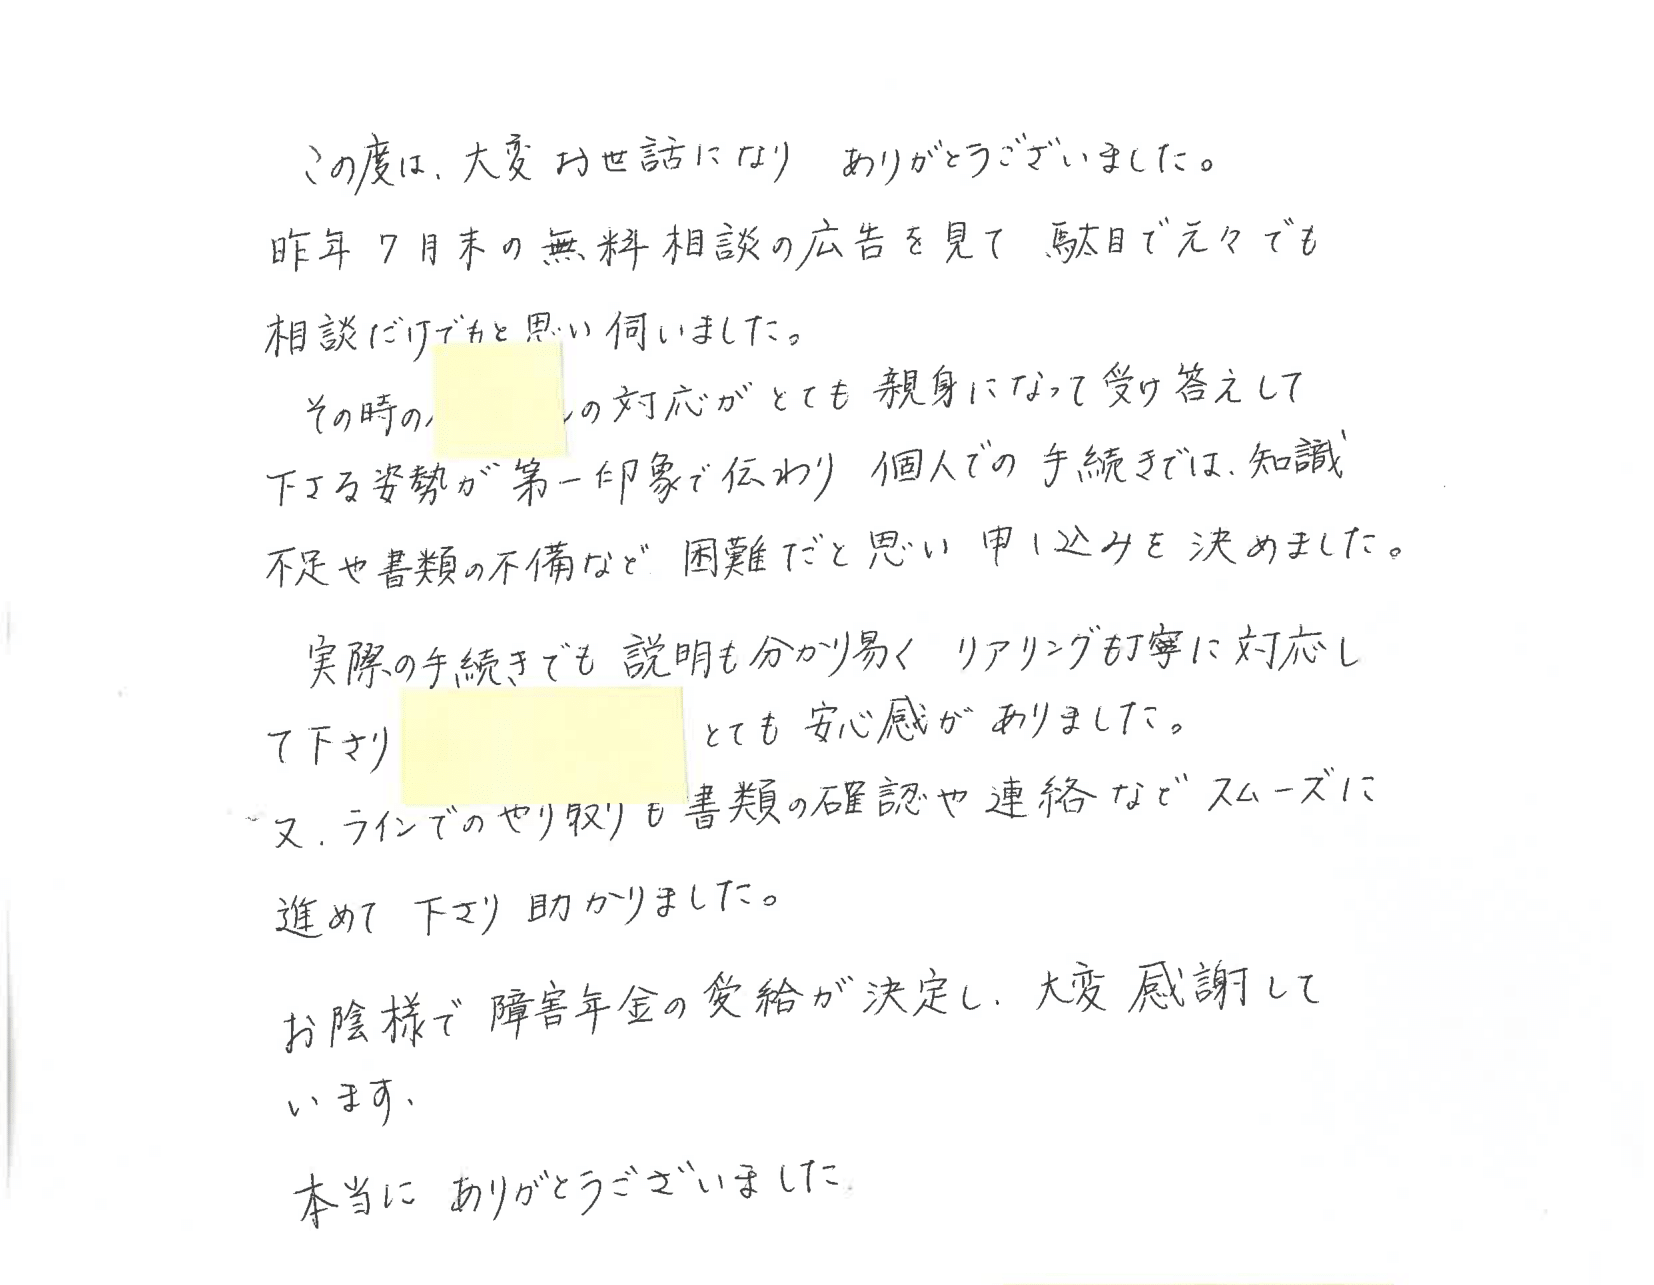 この度は、大変お世話になり ありがとうございました。
昨年7月末の無料相談の広告を見て 駄目で元々でも
相談だけでもと思い伺いました。
その時の の対応がとても親身になって受け答えして
下さる姿勢が第一印象で伝わり 個人での手続きでは、知識
不足や書類の不備など 困難だと思い申し込みを決めました。
実際の手続きでも説明も分かり易く リアリングも丁寧に対応し
て下さり とても安心感がありました。
又、ラインでのやり取りも書類の確認や連絡などスムーズに
進めて下さり助かりました。
お陰様で障害年金の受給が決定し、大変感謝して
います、
本当にありがとうございました